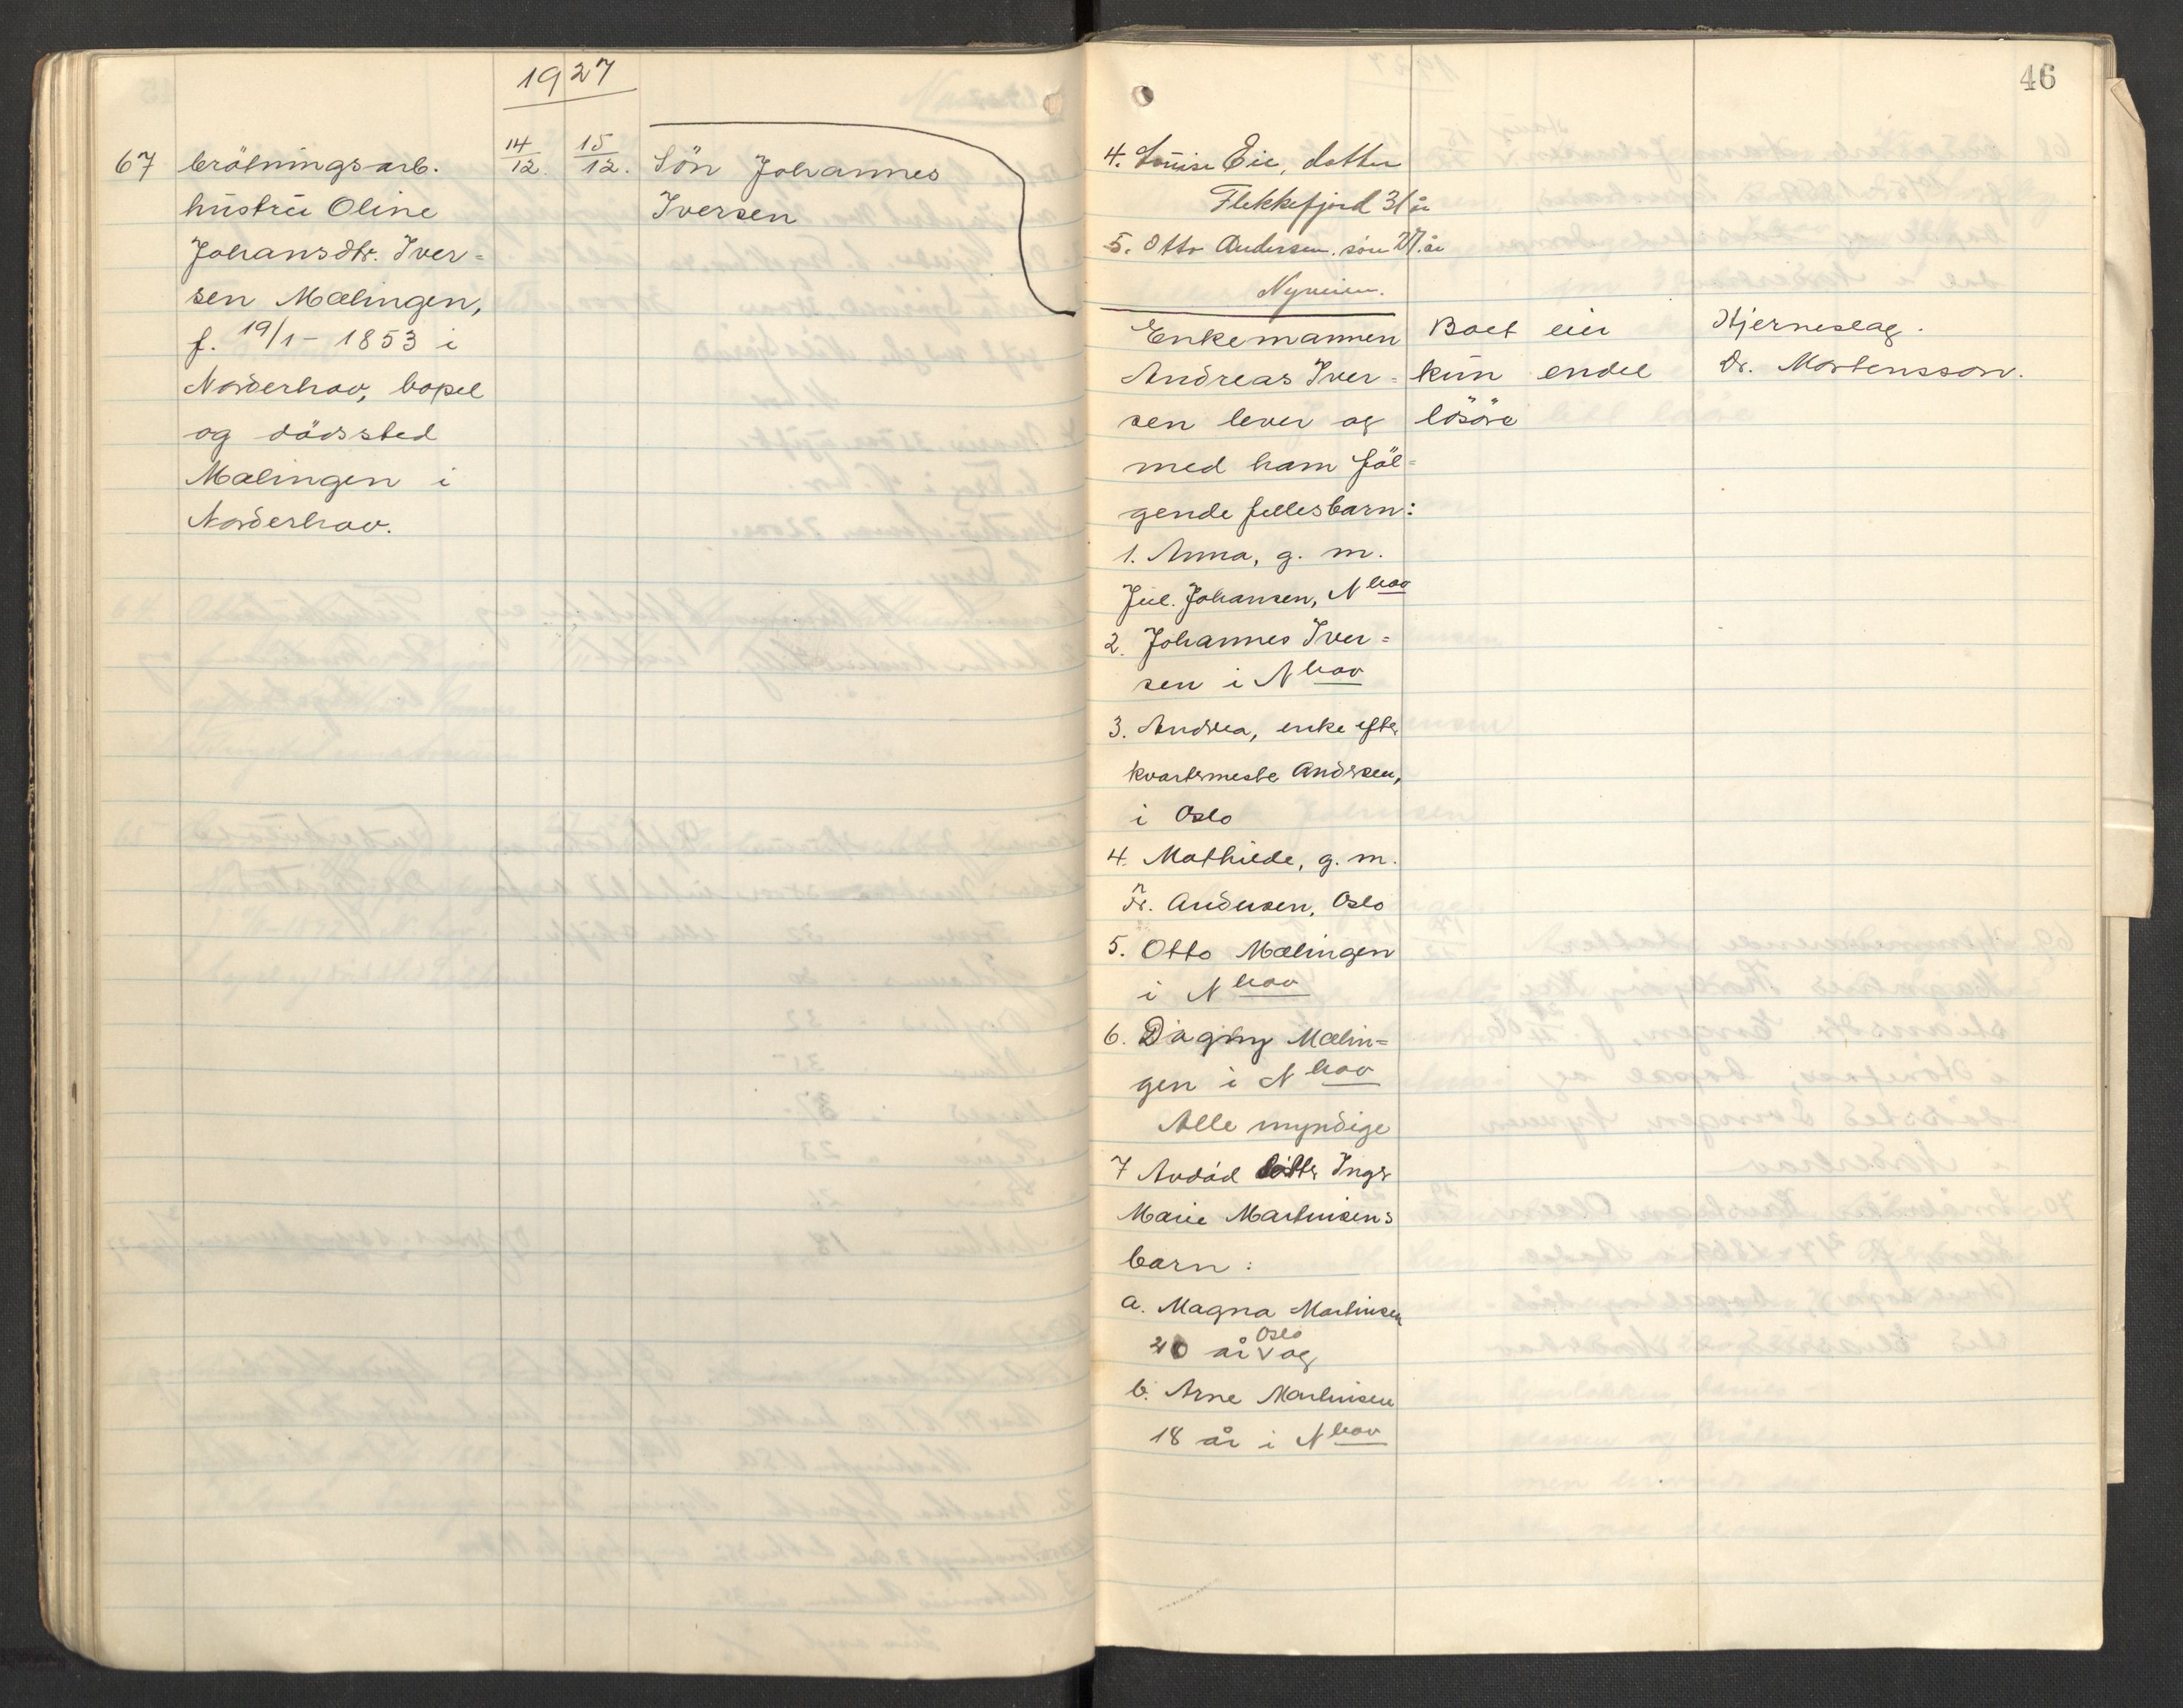 1927
67 brötningsarb.
hustru Oline
Johansdtr. Iver=
sen Mælingen,
f. 19/1 - 1853 i
Norderhov, bopel
og dödssted
Mælingen i
Norderhov.
14/12. 15/12.
Sön Johannes
Iversen
46
4. Louise Eie, datter
Flekkefjord 31 år
5. Otto Andersen. sön 27. år
Nyveien.
Enkemannen
Andreas Iver=
sen lever og
med ham föl=
gende fellesbarn:
1. Anna, g. m.
Jul. Johansen, Nhov
2. Johannes Iver=
sen i Nhov
3. Andrea, enke efter
kvartermester Andersen,
i Oslo
4. Mathilde, g. m.
Fr. Andersen, Oslo
5. Otto Mælingen
i Nhov
6. Dagny Mælin=
gen i Nhov
Alle myndige
7 Avdöd datter Inger
Marie Martinsens
barn:
a. Magna Martinsen
20 år Oslo og
b. Arne Martinsen
18 år i Nhov
Boet eier
kun endel
lösöre
Hjerneslag.
Dr. Mortensson.